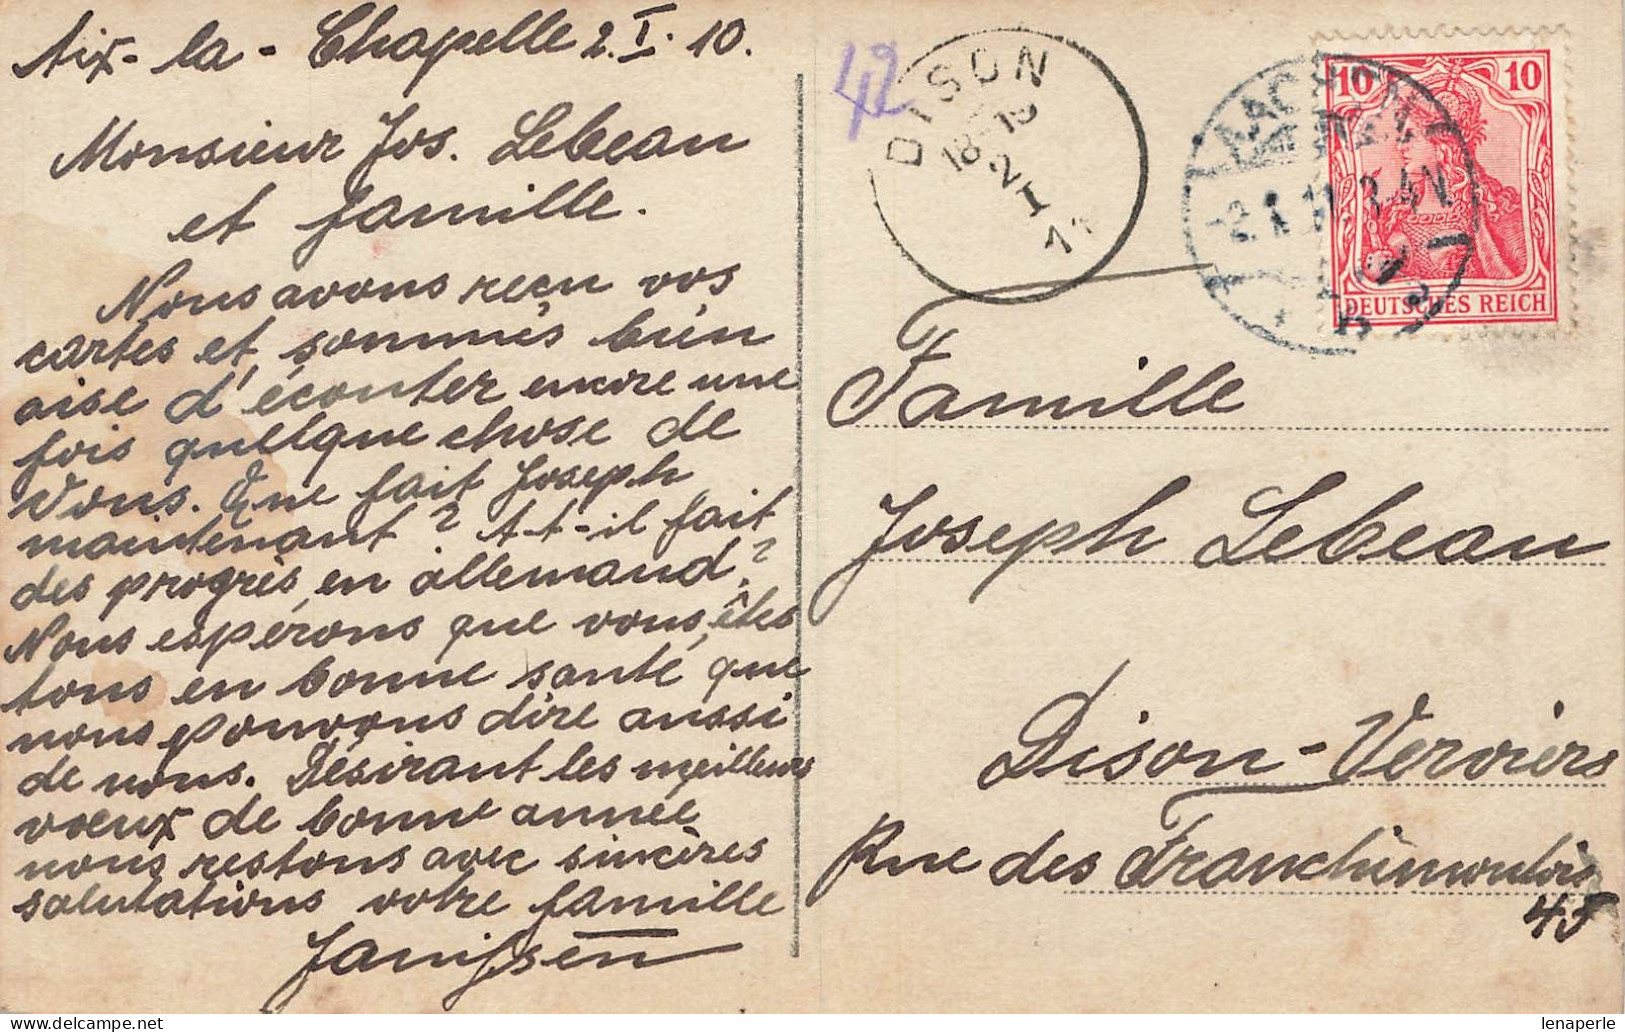 Aix-la-Chapelle 2.I.10.
Monsieur Jos. Lebeau
et famille.
Nous avons reçu vos
cartes et sommes bien
aise d'écouter encore une
fois quelque chose de
Vous. Que fait Joseph
maintenant? At-t-il fait
des progrès en allemand?
Nous espérons que vous êtes
tous en bonne santé, que
nous pouvons dire aussi
de nous. Désirant les meilleurs
vœux de bonne année
nous restons avec sincères
salutations votre famille
Janssen
42
DISON
18-19
2
I
11
AACHEN
2.1.11 3-4N
10 10
DEUTSCHES REICH
Famille
Joseph Lebeau
Dison-Verviers
Rue des Franchimontois
45
lenaperle